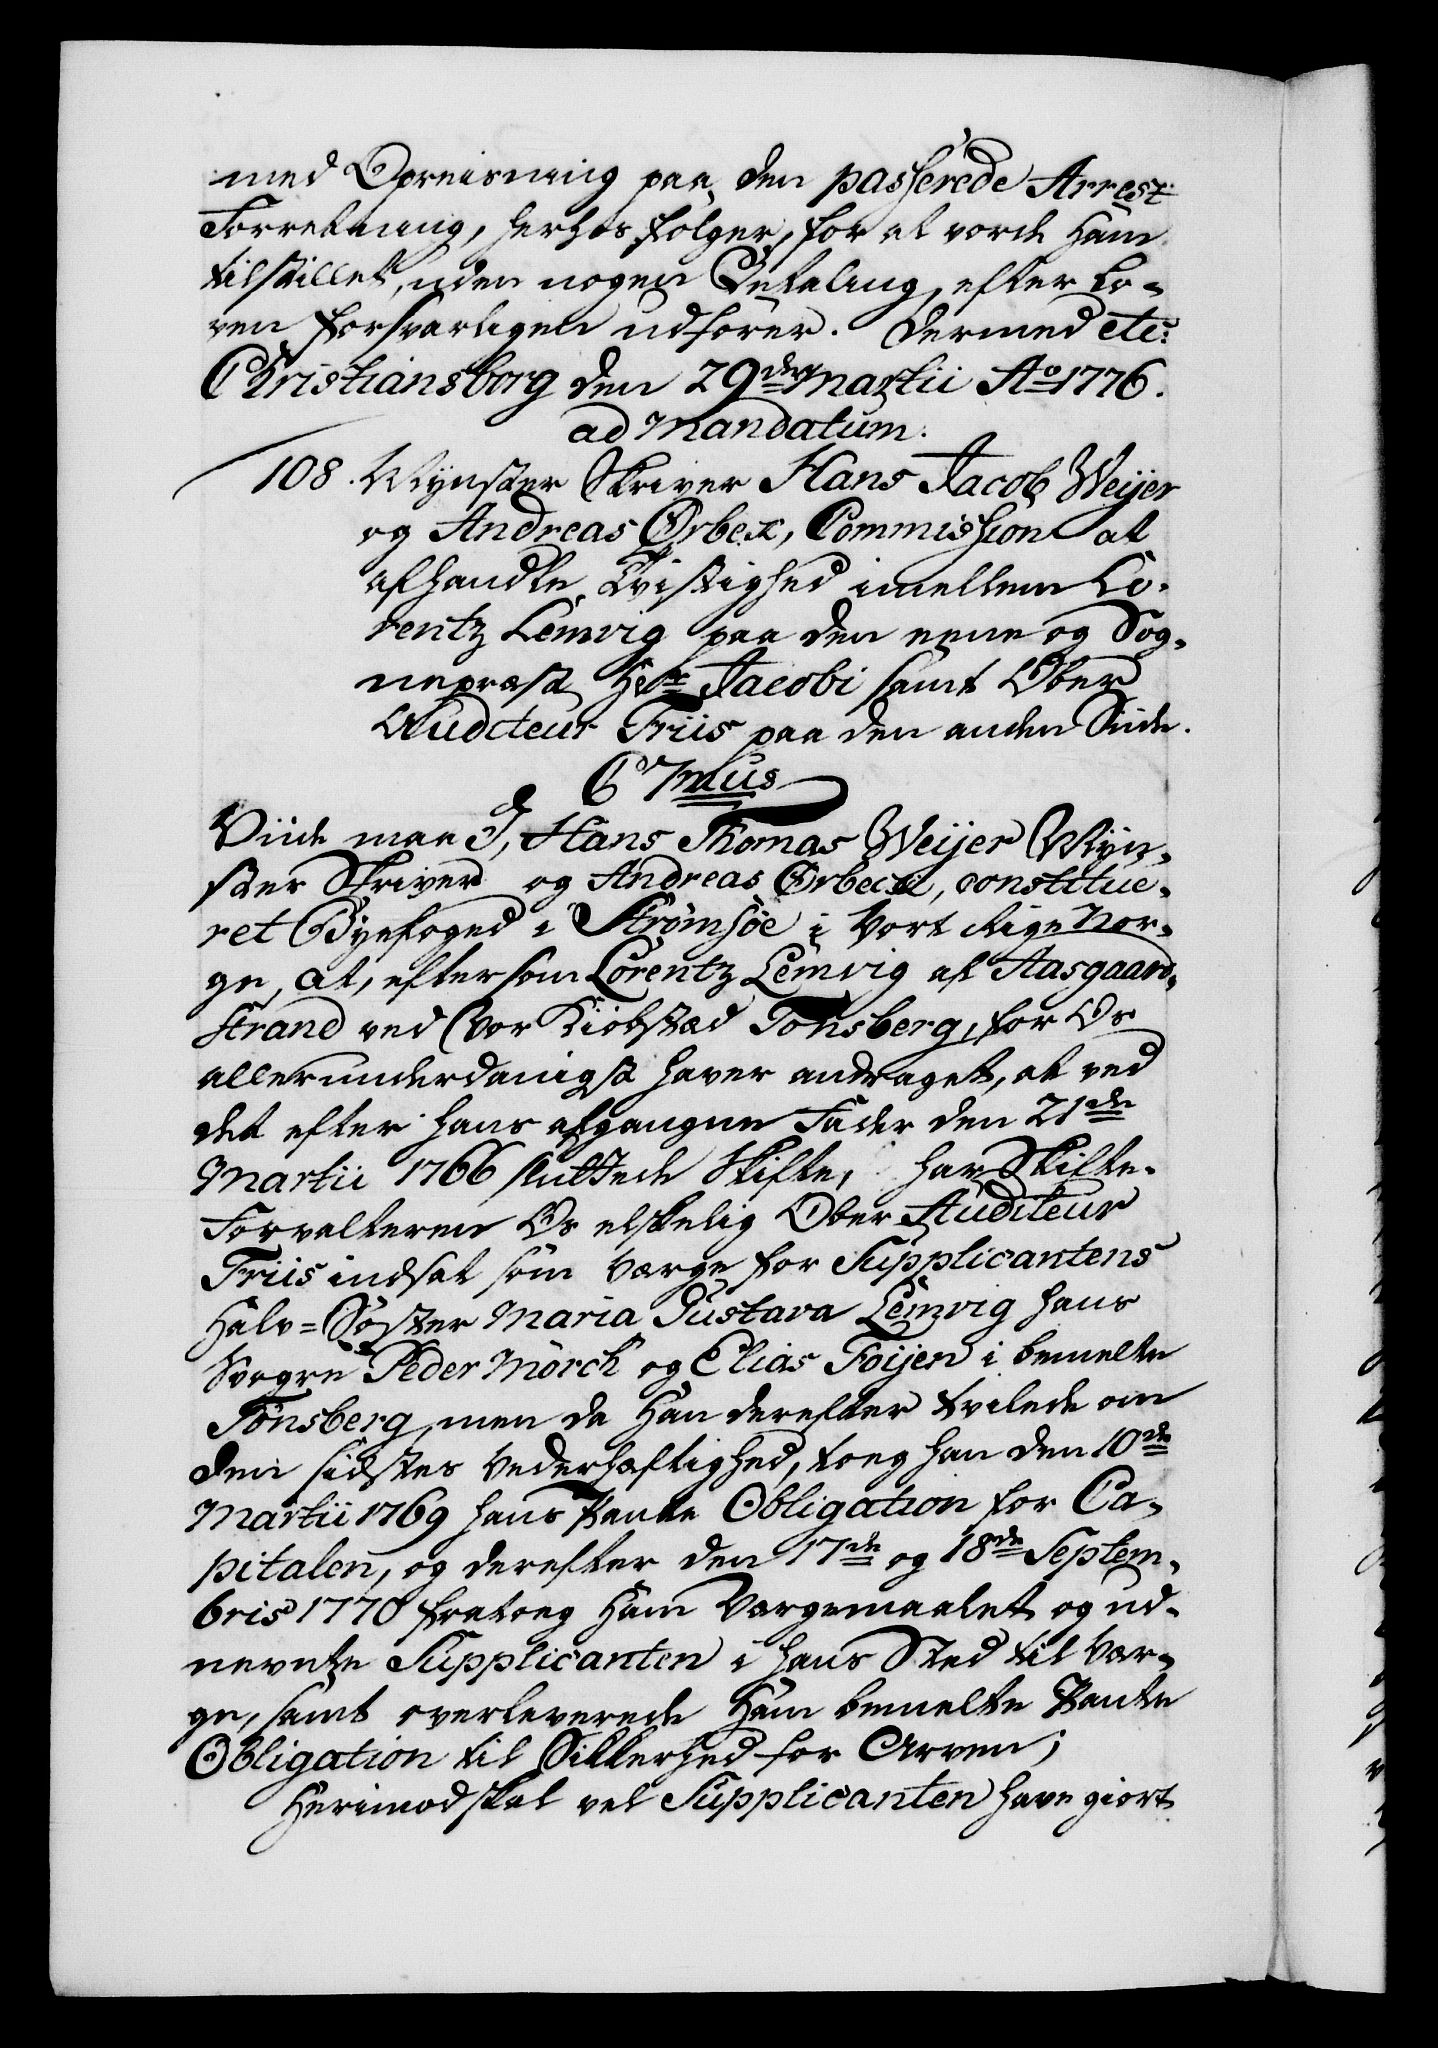 med Opreisning paa den passerede Arrest
Forretning, herhos følger, for at vorde Ham
tilstillet, uden nogen Betaling, efter Lo-
ven forsvarligen udfører. Dermed etc:
Christiansborg den 29de Martii Ao 1776.
ad Mandatum.
108. Mynster Skriver Hans Jacob Weijer
og Andreas Ørbeck, Commission at
afhandle Tvistighed imellem Lo-
rentz Lemvig paa den eene og Sog-
nepræst Hr Jacobi samt Ober
Auditeur Friis paa den anden Siide.
C 7mus
Viide maa I, Hans Thomas Weijer Myn-
ster Skriver og Andreas Ørbeck, constitue-
ret Byefoged i Strømsøe i Vort Rige Nor-
ge, at, eftersom Lorentz Lemvig af Aasgaard-
strand ved Vor Kiøbstæd Tønsberg, for Os
allerunderdanigst haver andraget, at ved
det efter hans afgangne Fader den 21de
Martii 1766 sluttede Skifte, har Skifte-
Forvalteren Os elskelig Ober Auditeur
Friis indsat som Værge for Supplicantens
Halv=Søster Maria Gustava Lemvig hans
Svogre Peder Mørch og Elias Foijen i bemelte
Tønsberg, men da Han derefter tvilede om
den sidstes Vederhæftighed, toeg han den 10de
Martii 1769 hans Pante Obligation for Ca-
pitalen, og derefter den 17de og 18de Septem-
bris 1770 fratoeg Ham Værgemaalet og ud-
nevnte Supplicanten i hans Sted til Vær-
ge, samt overleverede Ham bemelte Pante
Obligation til Sikkerhed for Arven;
Herimod skal vel Supplicanten have giort